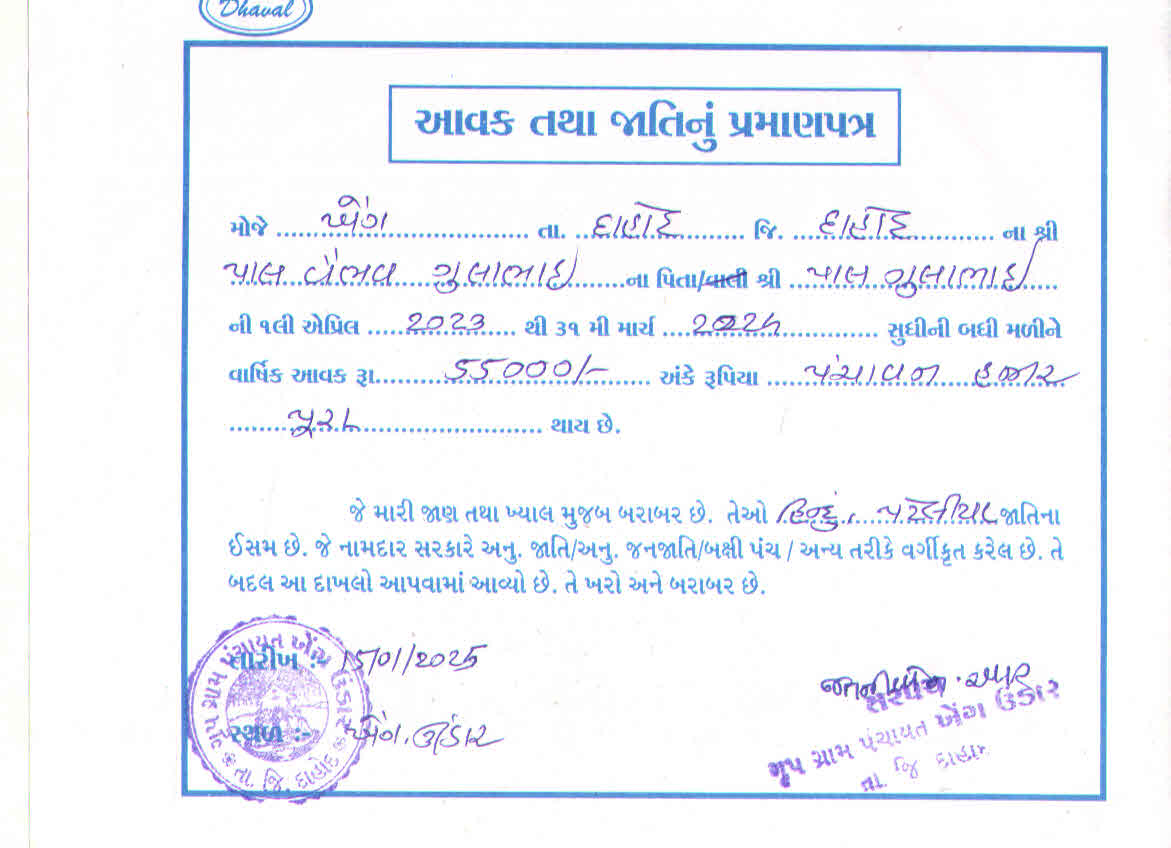 Dhaval
આવક તથા જાતિનું પ્રમાણપત્ર
મોજે ખેંગ તા. દાહોદ જિ. દાહોદ ના શ્રી
પાલ વૈભવ ગુલાભાઇ ના પિતા/વાલી શ્રી પાલ ગુલાભાઇ
ની ૧લી એપ્રિલ 2023 થી ૩૧ મી માર્ચ 2024 સુધીની બધી મળીને
વાર્ષિક આવક રૂા. 55000/- અંકે રૂપિયા પંચાવન હજાર
પૂરા થાય છે.
જે મારી જાણ તથા ખ્યાલ મુજબ બરાબર છે. તેઓ હિન્દુ, જાતિના
ઈસમ છે. જે નામદાર સરકારે અનુ. જાતિ/અનુ. જનજાતિ/બક્ષી પંચ / અન્ય તરીકે વર્ગીકૃત કરેલ છે. તે
બદલ આ દાખલો આપવામાં આવ્યો છે. તે ખરો અને બરાબર છે.
તારીખ :- 15/01/2025
સ્થળ :- ખેંગ. ઉંડાર
ગૃપ ગ્રામ પંચાયત ખેંગ ઉંડાર
તા. જિ. દાહોદ
સરપંચ
ગૃપ ગ્રામ પંચાયત ખેંગ ઉંડાર
તા. જિ